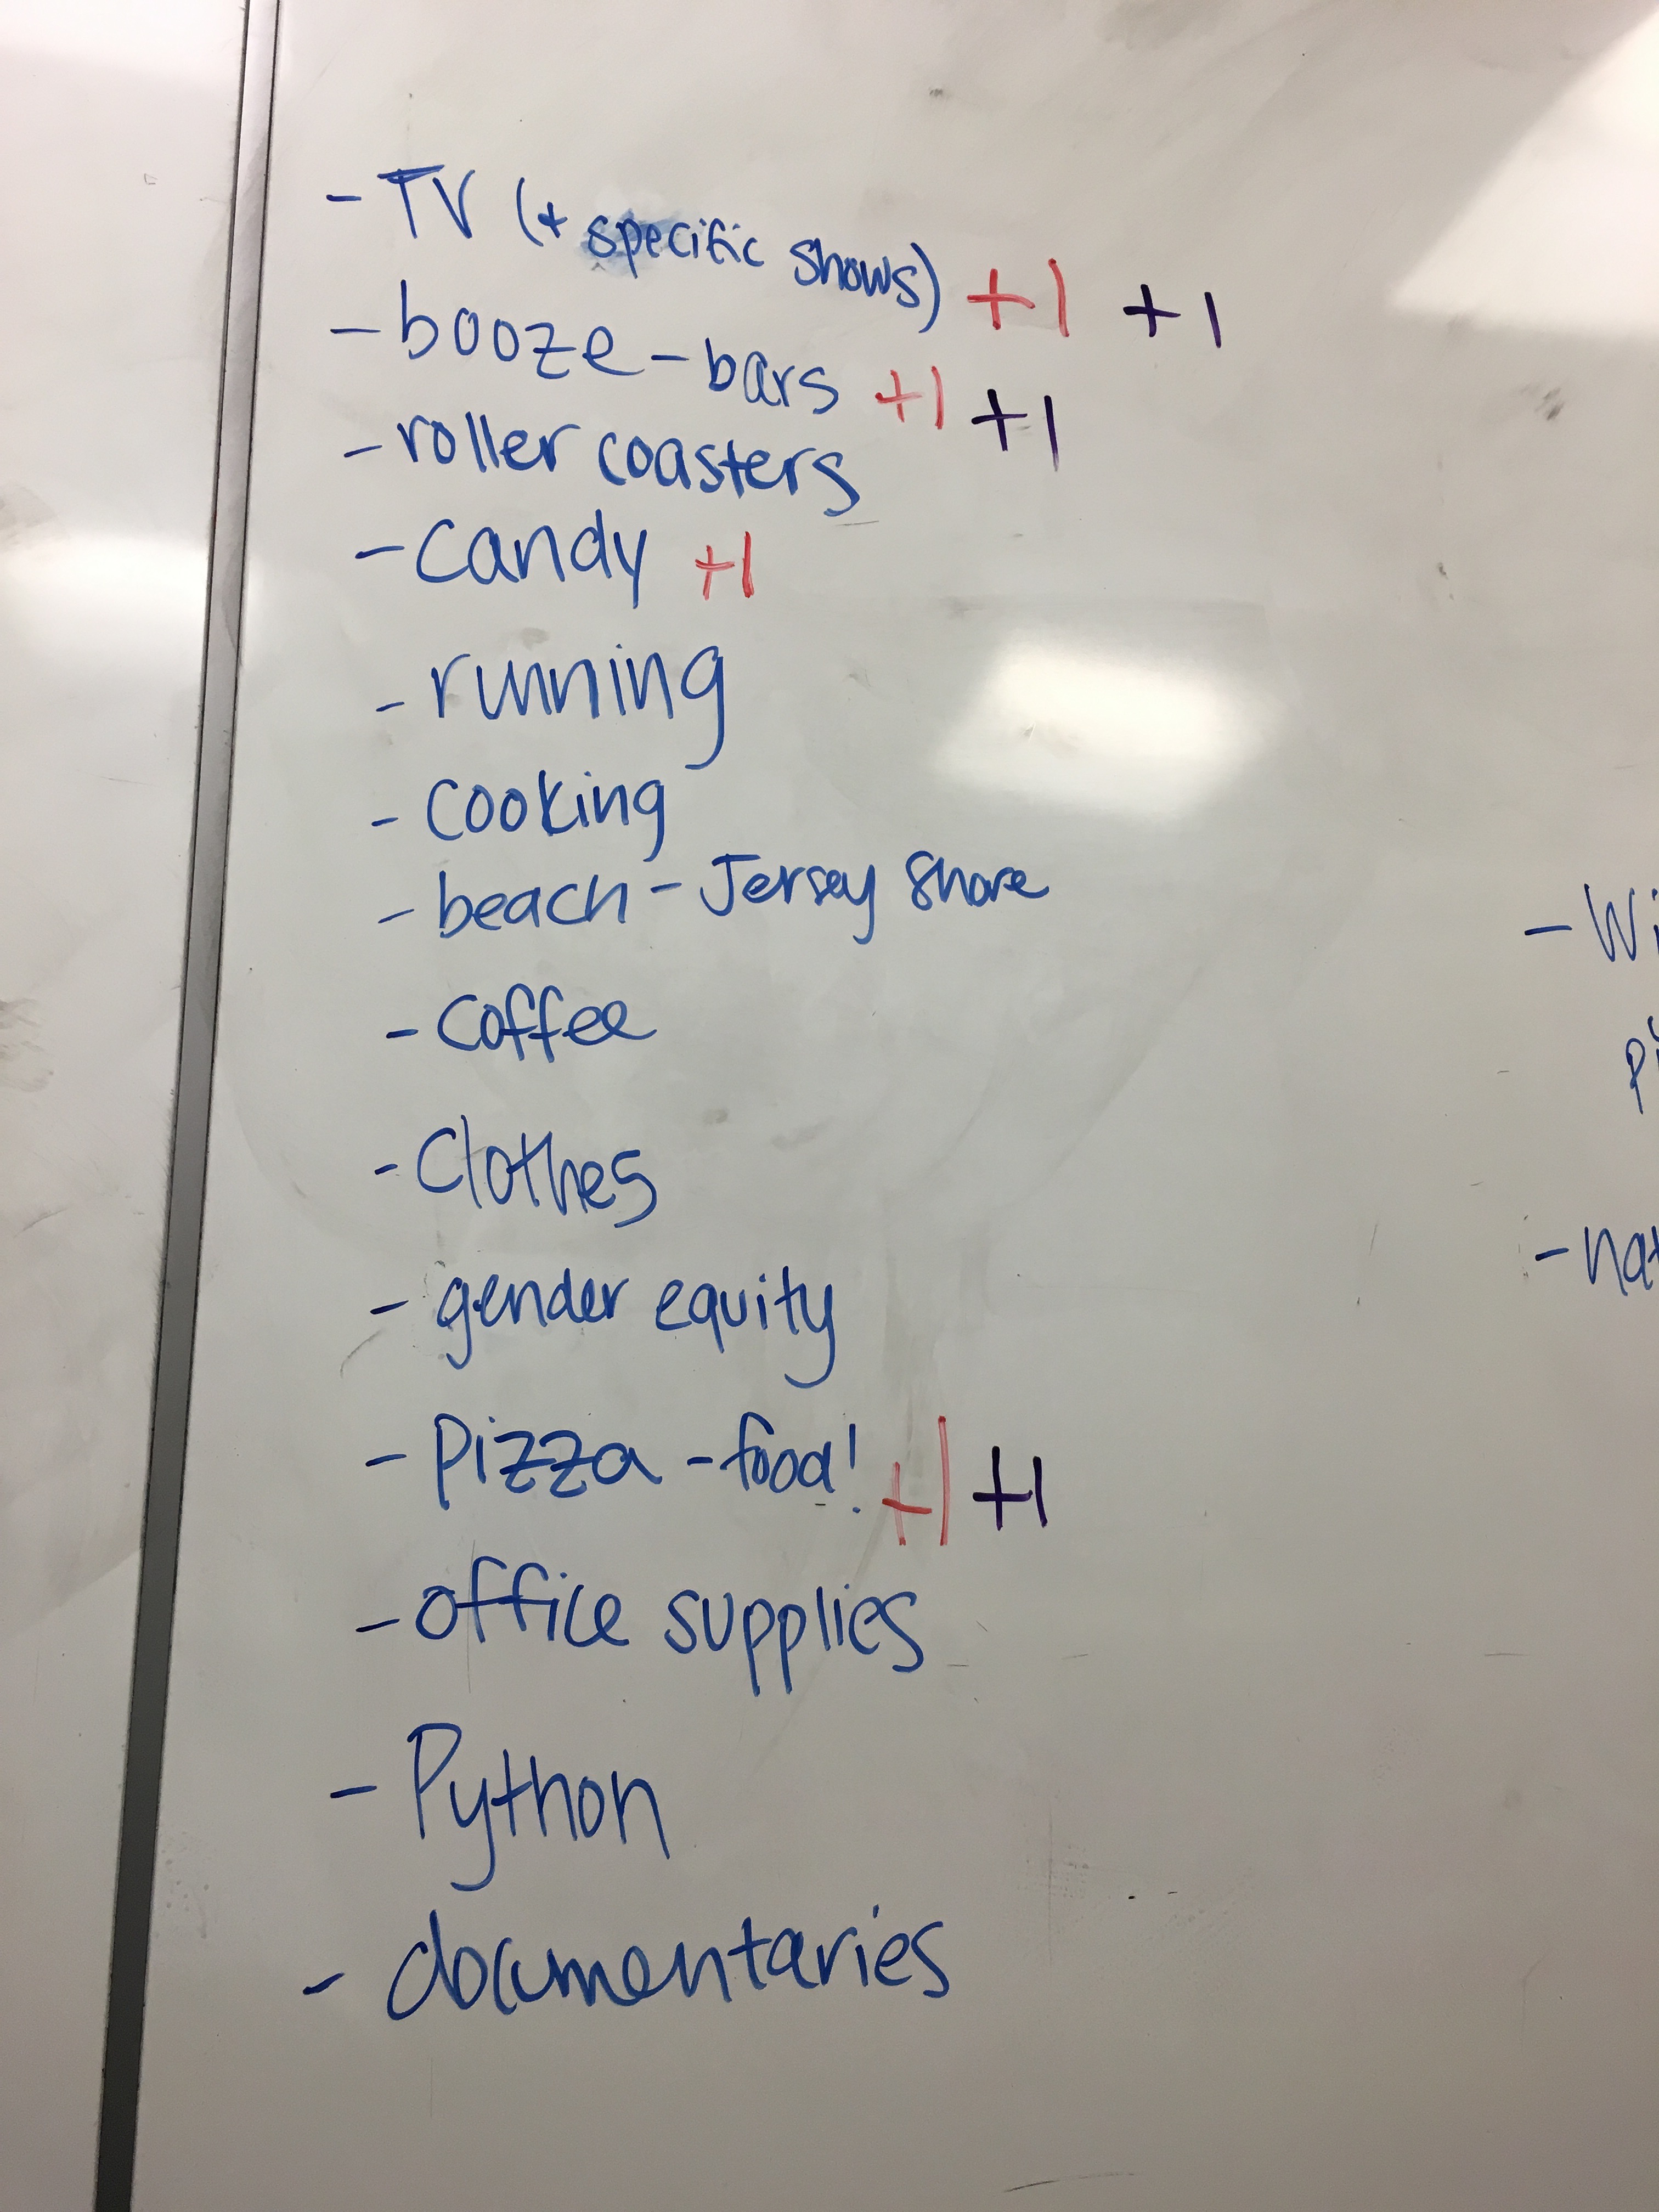 - TV (+ specific shows) +1 +1
- booze - bars +1 +1
- roller coasters
- candy +1
- running
- cooking
- beach - Jersey Shore
- coffee
- clothes
- gender equity
- pizza - food! +1 +1
- office supplies
- Python
- documentaries